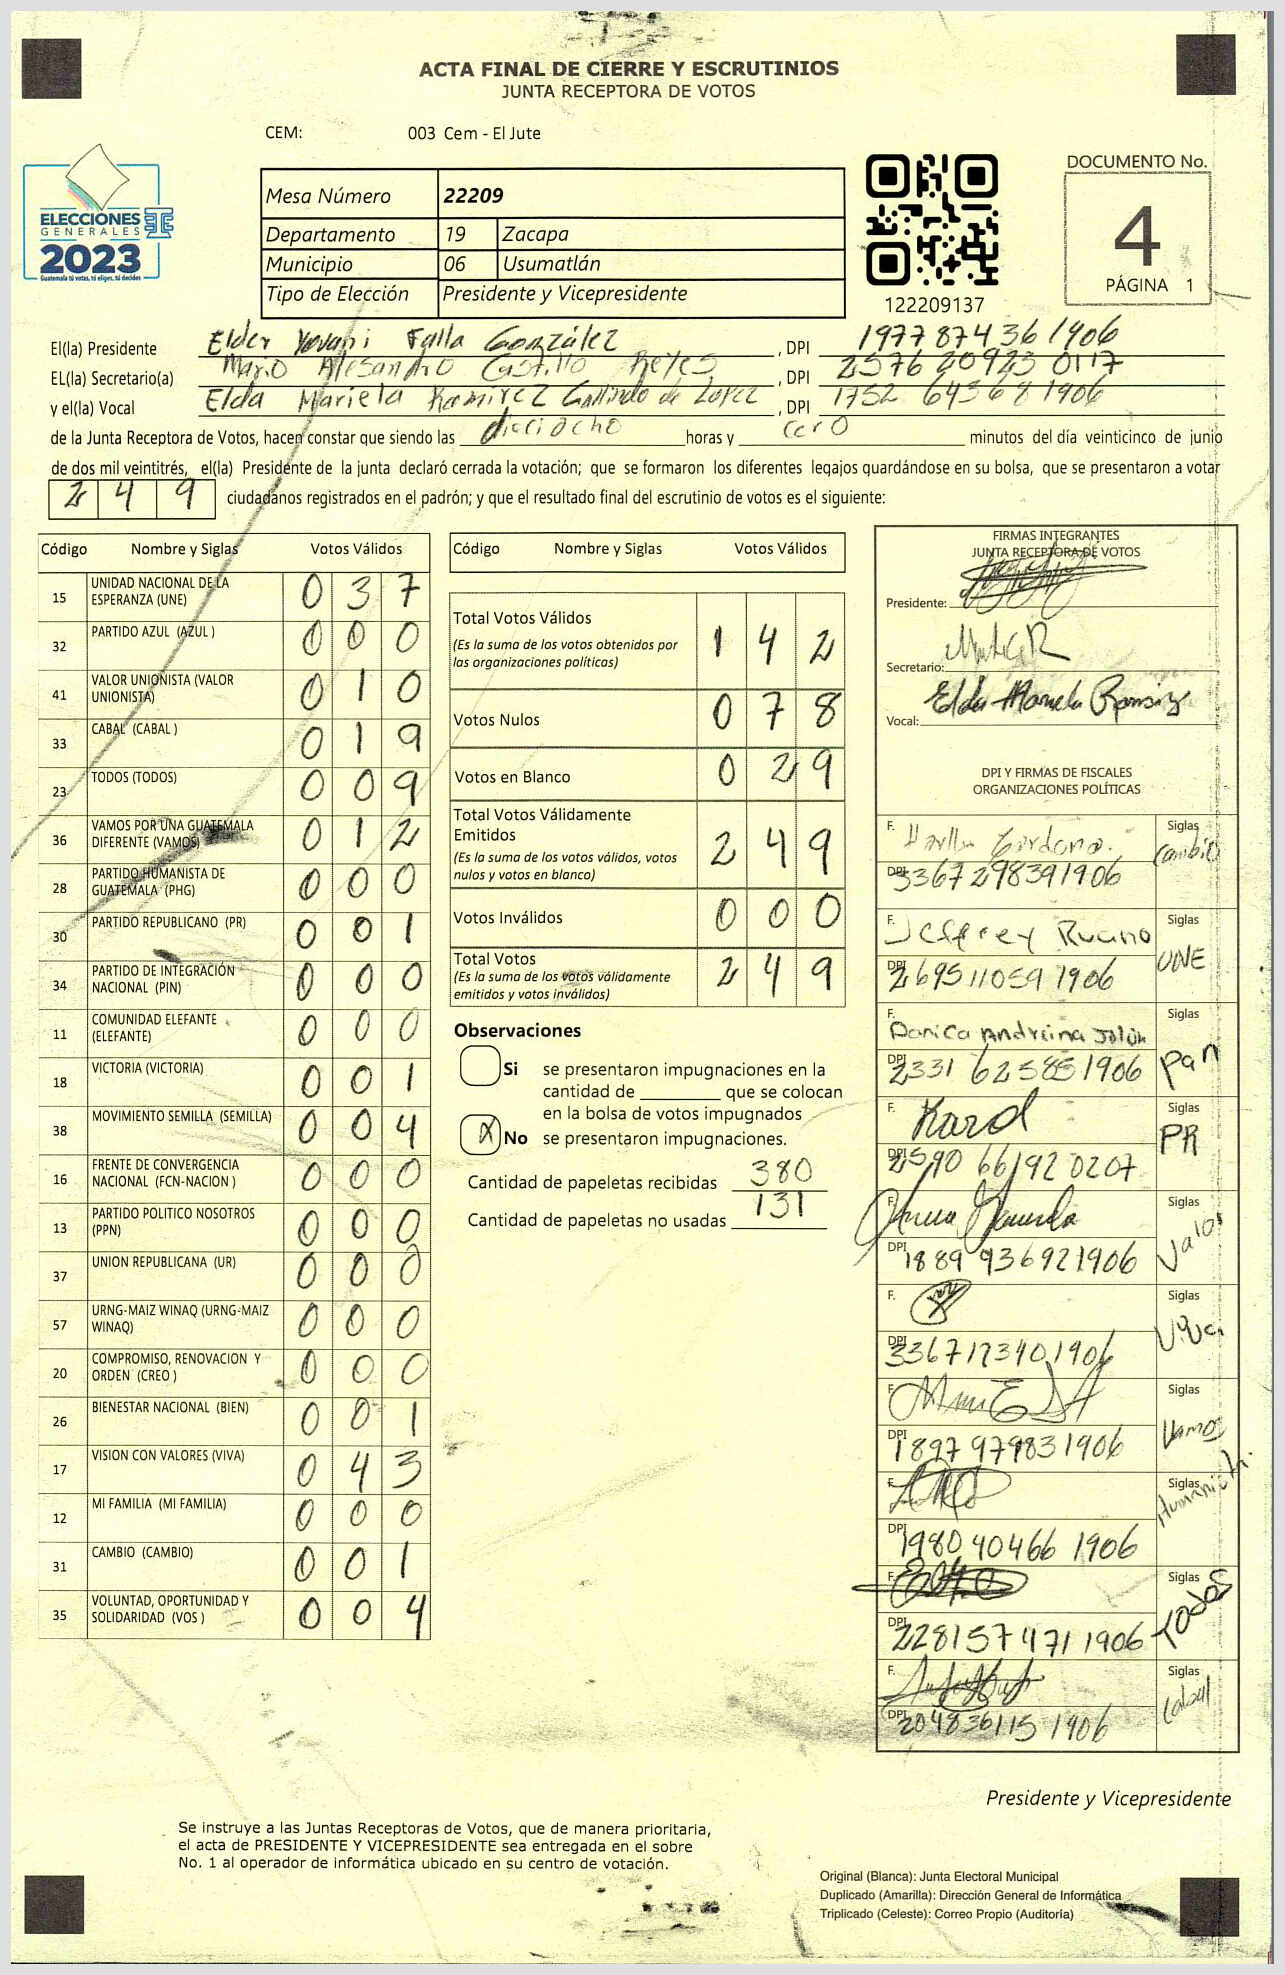 ACTA FINAL DE CIERRE Y ESCRUTINIOS
JUNTA RECEPTORA DE VOTOS
CEM: 003 Cem - El Jute
ELECCIONES
GENERALES
2023
Guatemala tú votas, tú eliges, tú decides
Mesa Número 22209
Departamento 19 Zacapa
Municipio 06 Usumatlán
Tipo de Elección Presidente y Vicepresidente
122209137
DOCUMENTO No.
4
PÁGINA 1
El(la) Presidente Elder Yovani Falla González, DPI 1977874361906
EL(la) Secretario(a) Mario Alesandro Castillo Reyes, DPI 2576209230117
y el(la) Vocal Elda Mariela Ramirez Gallindo de Lopez, DPI 1752643681906
de la Junta Receptora de Votos, hacen constar que siendo las dieciocho horas y cero minutos del día veinticinco de junio
de dos mil veintitrés, el(la) Presidente de la junta declaró cerrada la votación; que se formaron los diferentes legajos guardándose en su bolsa, que se presentaron a votar
249 ciudadanos registrados en el padrón; y que el resultado final del escrutinio de votos es el siguiente:
Código Nombre y Siglas Votos Válidos
15 UNIDAD NACIONAL DE LA ESPERANZA (UNE) 037
32 PARTIDO AZUL (AZUL ) 000
41 VALOR UNIONISTA (VALOR UNIONISTA) 010
33 CABAL (CABAL ) 019
23 TODOS (TODOS) 009
36 VAMOS POR UNA GUATEMALA DIFERENTE (VAMOS) 012
28 PARTIDO HUMANISTA DE GUATEMALA (PHG) 000
30 PARTIDO REPUBLICANO (PR) 001
34 PARTIDO DE INTEGRACIÓN NACIONAL (PIN) 000
11 COMUNIDAD ELEFANTE (ELEFANTE) 000
18 VICTORIA (VICTORIA) 001
38 MOVIMIENTO SEMILLA (SEMILLA) 004
16 FRENTE DE CONVERGENCIA NACIONAL (FCN-NACION ) 000
13 PARTIDO POLITICO NOSOTROS (PPN) 000
37 UNION REPUBLICANA (UR) 000
57 URNG-MAIZ WINAQ (URNG-MAIZ WINAQ) 000
20 COMPROMISO, RENOVACION Y ORDEN (CREO ) 000
26 BIENESTAR NACIONAL (BIEN) 001
17 VISION CON VALORES (VIVA) 043
12 MI FAMILIA (MI FAMILIA) 000
31 CAMBIO (CAMBIO) 001
35 VOLUNTAD, OPORTUNIDAD Y SOLIDARIDAD (VOS ) 004
Código Nombre y Siglas Votos Válidos
Total Votos Válidos 142
(Es la suma de los votos obtenidos por
las organizaciones políticas)
Votos Nulos 078
Votos en Blanco 029
Total Votos Válidamente
Emitidos 249
(Es la suma de los votos válidos, votos
nulos y votos en blanco)
Votos Inválidos 000
Total Votos 249
(Es la suma de los votos válidamente
emitidos y votos inválidos)
Observaciones
Si se presentaron impugnaciones en la
cantidad de ________ que se colocan
en la bolsa de votos impugnados
X No se presentaron impugnaciones.
Cantidad de papeletas recibidas 380
Cantidad de papeletas no usadas 131
FIRMAS INTEGRANTES
JUNTA RECEPTORA DE VOTOS
Presidente:
Secretario:
Vocal: Elda Mariela Ramirez
DPI Y FIRMAS DE FISCALES
ORGANIZACIONES POLÍTICAS
F. Cardona. Siglas Cambio
DPI 3367298391906
F. Jeffrey Ruano Siglas UNE
DPI 2695110591906
F. Danica Andreina Siglas Pan
DPI 2331625851906
F. Siglas PR
DPI 2590661920207
F. Siglas Valor
DPI 1889936921906
F. Siglas Viva
DPI 3367123401906
F. Siglas Vamos
DPI 1897979831906
F. Siglas Humanista
DPI 1980404661906
F. Siglas Todos
DPI 2281574711906
F. Siglas Cabal
DPI 2048361151906
Presidente y Vicepresidente
Se instruye a las Juntas Receptoras de Votos, que de manera prioritaria,
el acta de PRESIDENTE Y VICEPRESIDENTE sea entregada en el sobre
No. 1 al operador de informática ubicado en su centro de votación.
Original (Blanca): Junta Electoral Municipal
Duplicado (Amarilla): Dirección General de Informática
Triplicado (Celeste): Correo Propio (Auditoría)